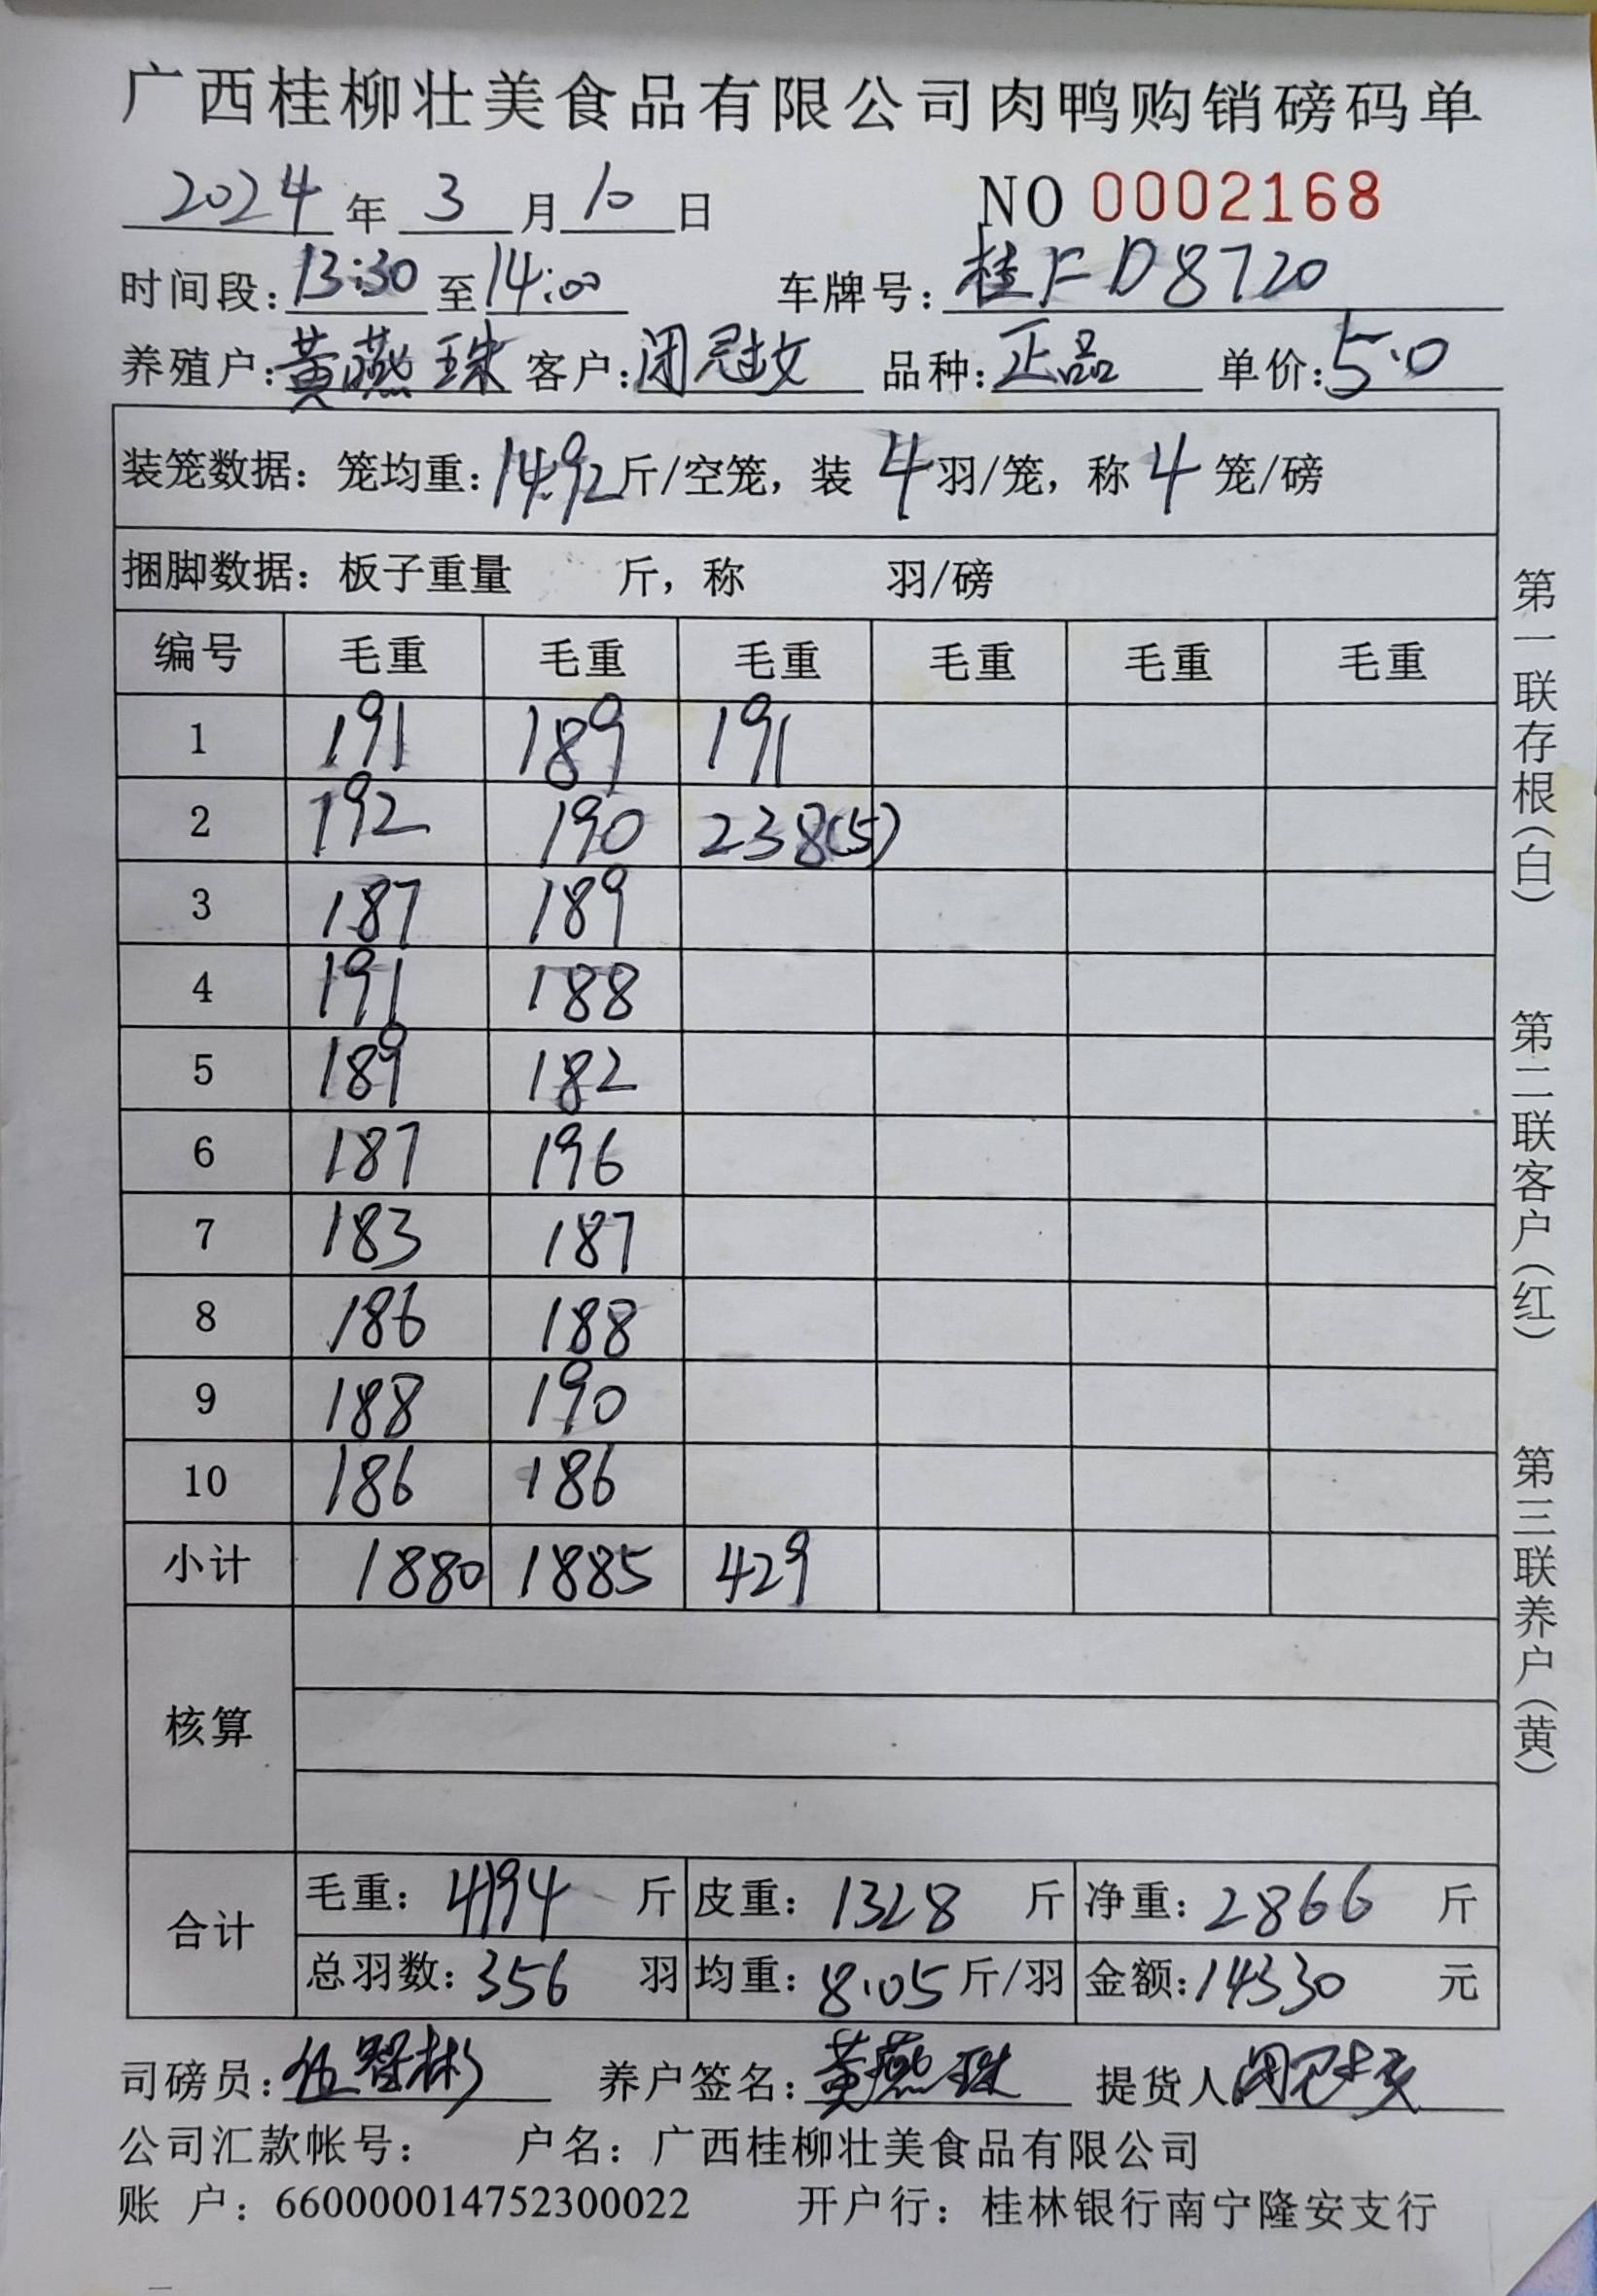 广西桂柳壮美食品有限公司肉鸭购销磅码单
2024年 3月10日 NO 0002168
时间段:13:30至14:00 车牌号:桂FD8720
养殖户:黄燕珠 客户:闭冠 品种:正品 单价:5.0
装笼数据: 笼均重:14.92斤/空笼, 装 4羽/笼, 称4笼/磅
捆脚数据: 板子重量 斤, 称 羽/磅
编号 毛重 毛重 毛重 毛重 毛重 毛重
1 191 189 191
2 192 190 238(5)
3 187 189
4 191 188
5 189 182
6 187 196
7 183 187
8 186 188
9 188 190
10 186 186
小计 1880 1885 429
核算
合计
毛重: 4194 斤 皮重: 1328 斤 净重: 2866 斤
总羽数: 356 羽 均重: 8.05斤/羽 金额:14330 元
司磅员:伍智彬 养户签名:黄燕珠 提货人:闭
公司汇款帐号: 户名: 广西桂柳壮美食品有限公司
账 户: 660000014752300022 开户行: 桂林银行南宁隆安支行
第一联存根(白) 第二联客户(红) 第三联养户(黄)